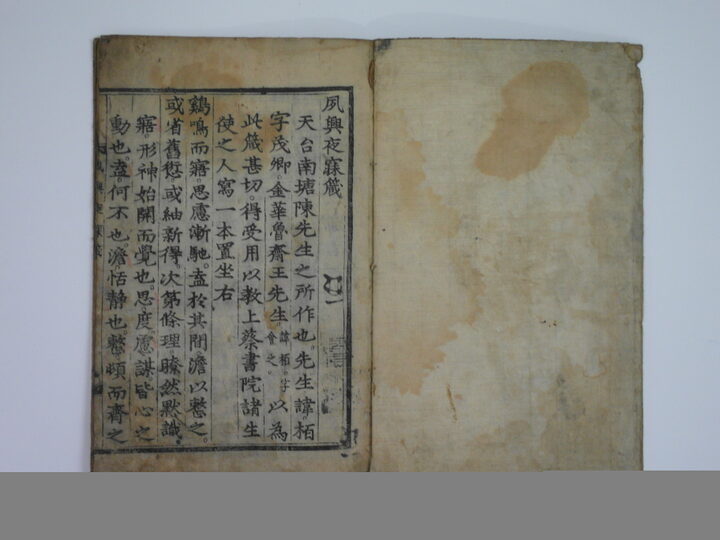 夙興夜寐箴
天台南塘陳先生之所作也。先生諱栢
字茂卿。金華魯齋王先生。諱栢。字會之。以為
此箴甚切。得受用以敎上蔡書院諸生
使之人寫一本置坐右
鷄鳴而寤。思慮漸馳。盍於其間。澹以整之。
或省舊愆。或紬新得。次第條理。瞭然默識。
寤。形神始開而覺也。思度慮謀皆心之
動也。盍。何不也。澹。恬靜也。整。頓而齊之